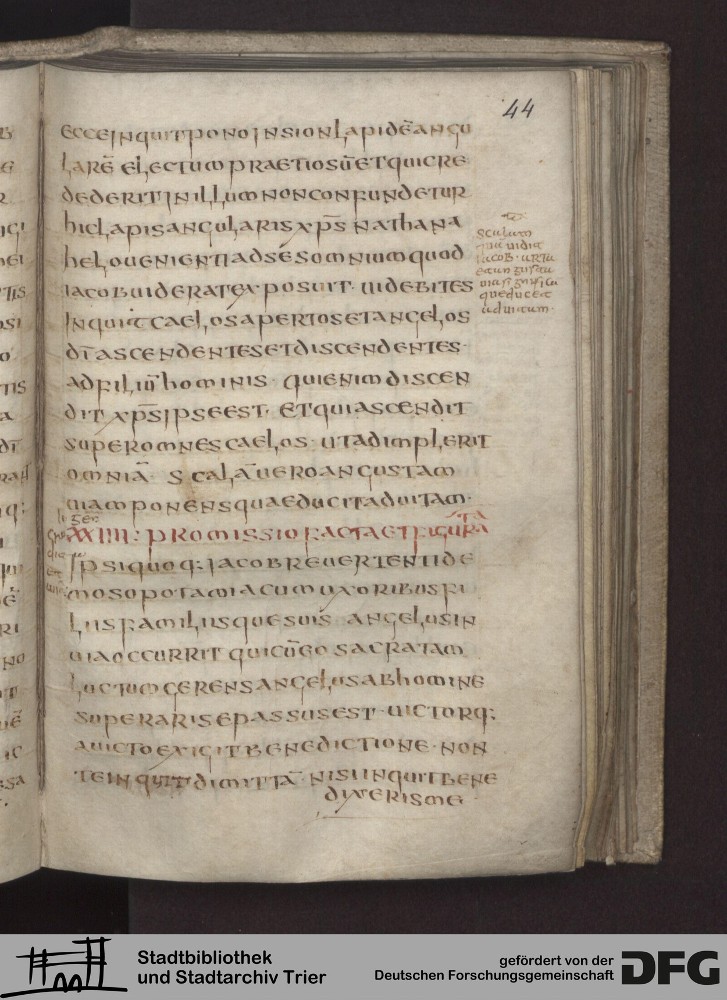 44
ECCEINQUITPONOINSIONLAPIDĒANGU
LARĒ ELECTUMPRAETIOSŪETQUICRE
DEDERITINILLUMNONCONFUNDETUR
HICLAPISANGULARISXP̄S NATHANA
HELOUENIENTIADSESOMNIUMQUOD
IACOBUIDERATEXPOSUIT· UIDEBITES
INQUITCAELOSAPERTOSETANGELOS
DĪASCENDENTESETDISCENDENTES·
ADFILIŪHOMINIS· QUIENIMDISCEN
DIT XP̄SIPSEEST· ETQUIASCENDIT
SUPEROMNESCAELOS· UTADIMPLERIT
OMNIĀ· SCALĀUEROANGUSTAM
UIAMPONENSQUAEDUCITADUITAM·
XXIIII: PROMISSIOFACTAETFIGURATA
IPSIQUOQ: IACOBREUERTENTIDE
MOSOPOTAMIACUMUXORIBUSFI
LIISFAMILIISQUESUIS ANGELUSIN
UIAOCCURRIT QUICŪEO SACRATAM
LUCTUMGERENSANGELUSABHOMINE
SUPERARISEPASSUSEST· UICTORQ:
AUICTOEXIGITBENEDICTIONE· NON
TEINQUITDIMITTĀ· NISIINQUITBENE
DIXERISME
IACOB·
QUEDUCET
ADUITAM·
Stadtbibliothek
und Stadtarchiv Trier
gefördert von der
Deutschen Forschungsgemeinschaft
DFG